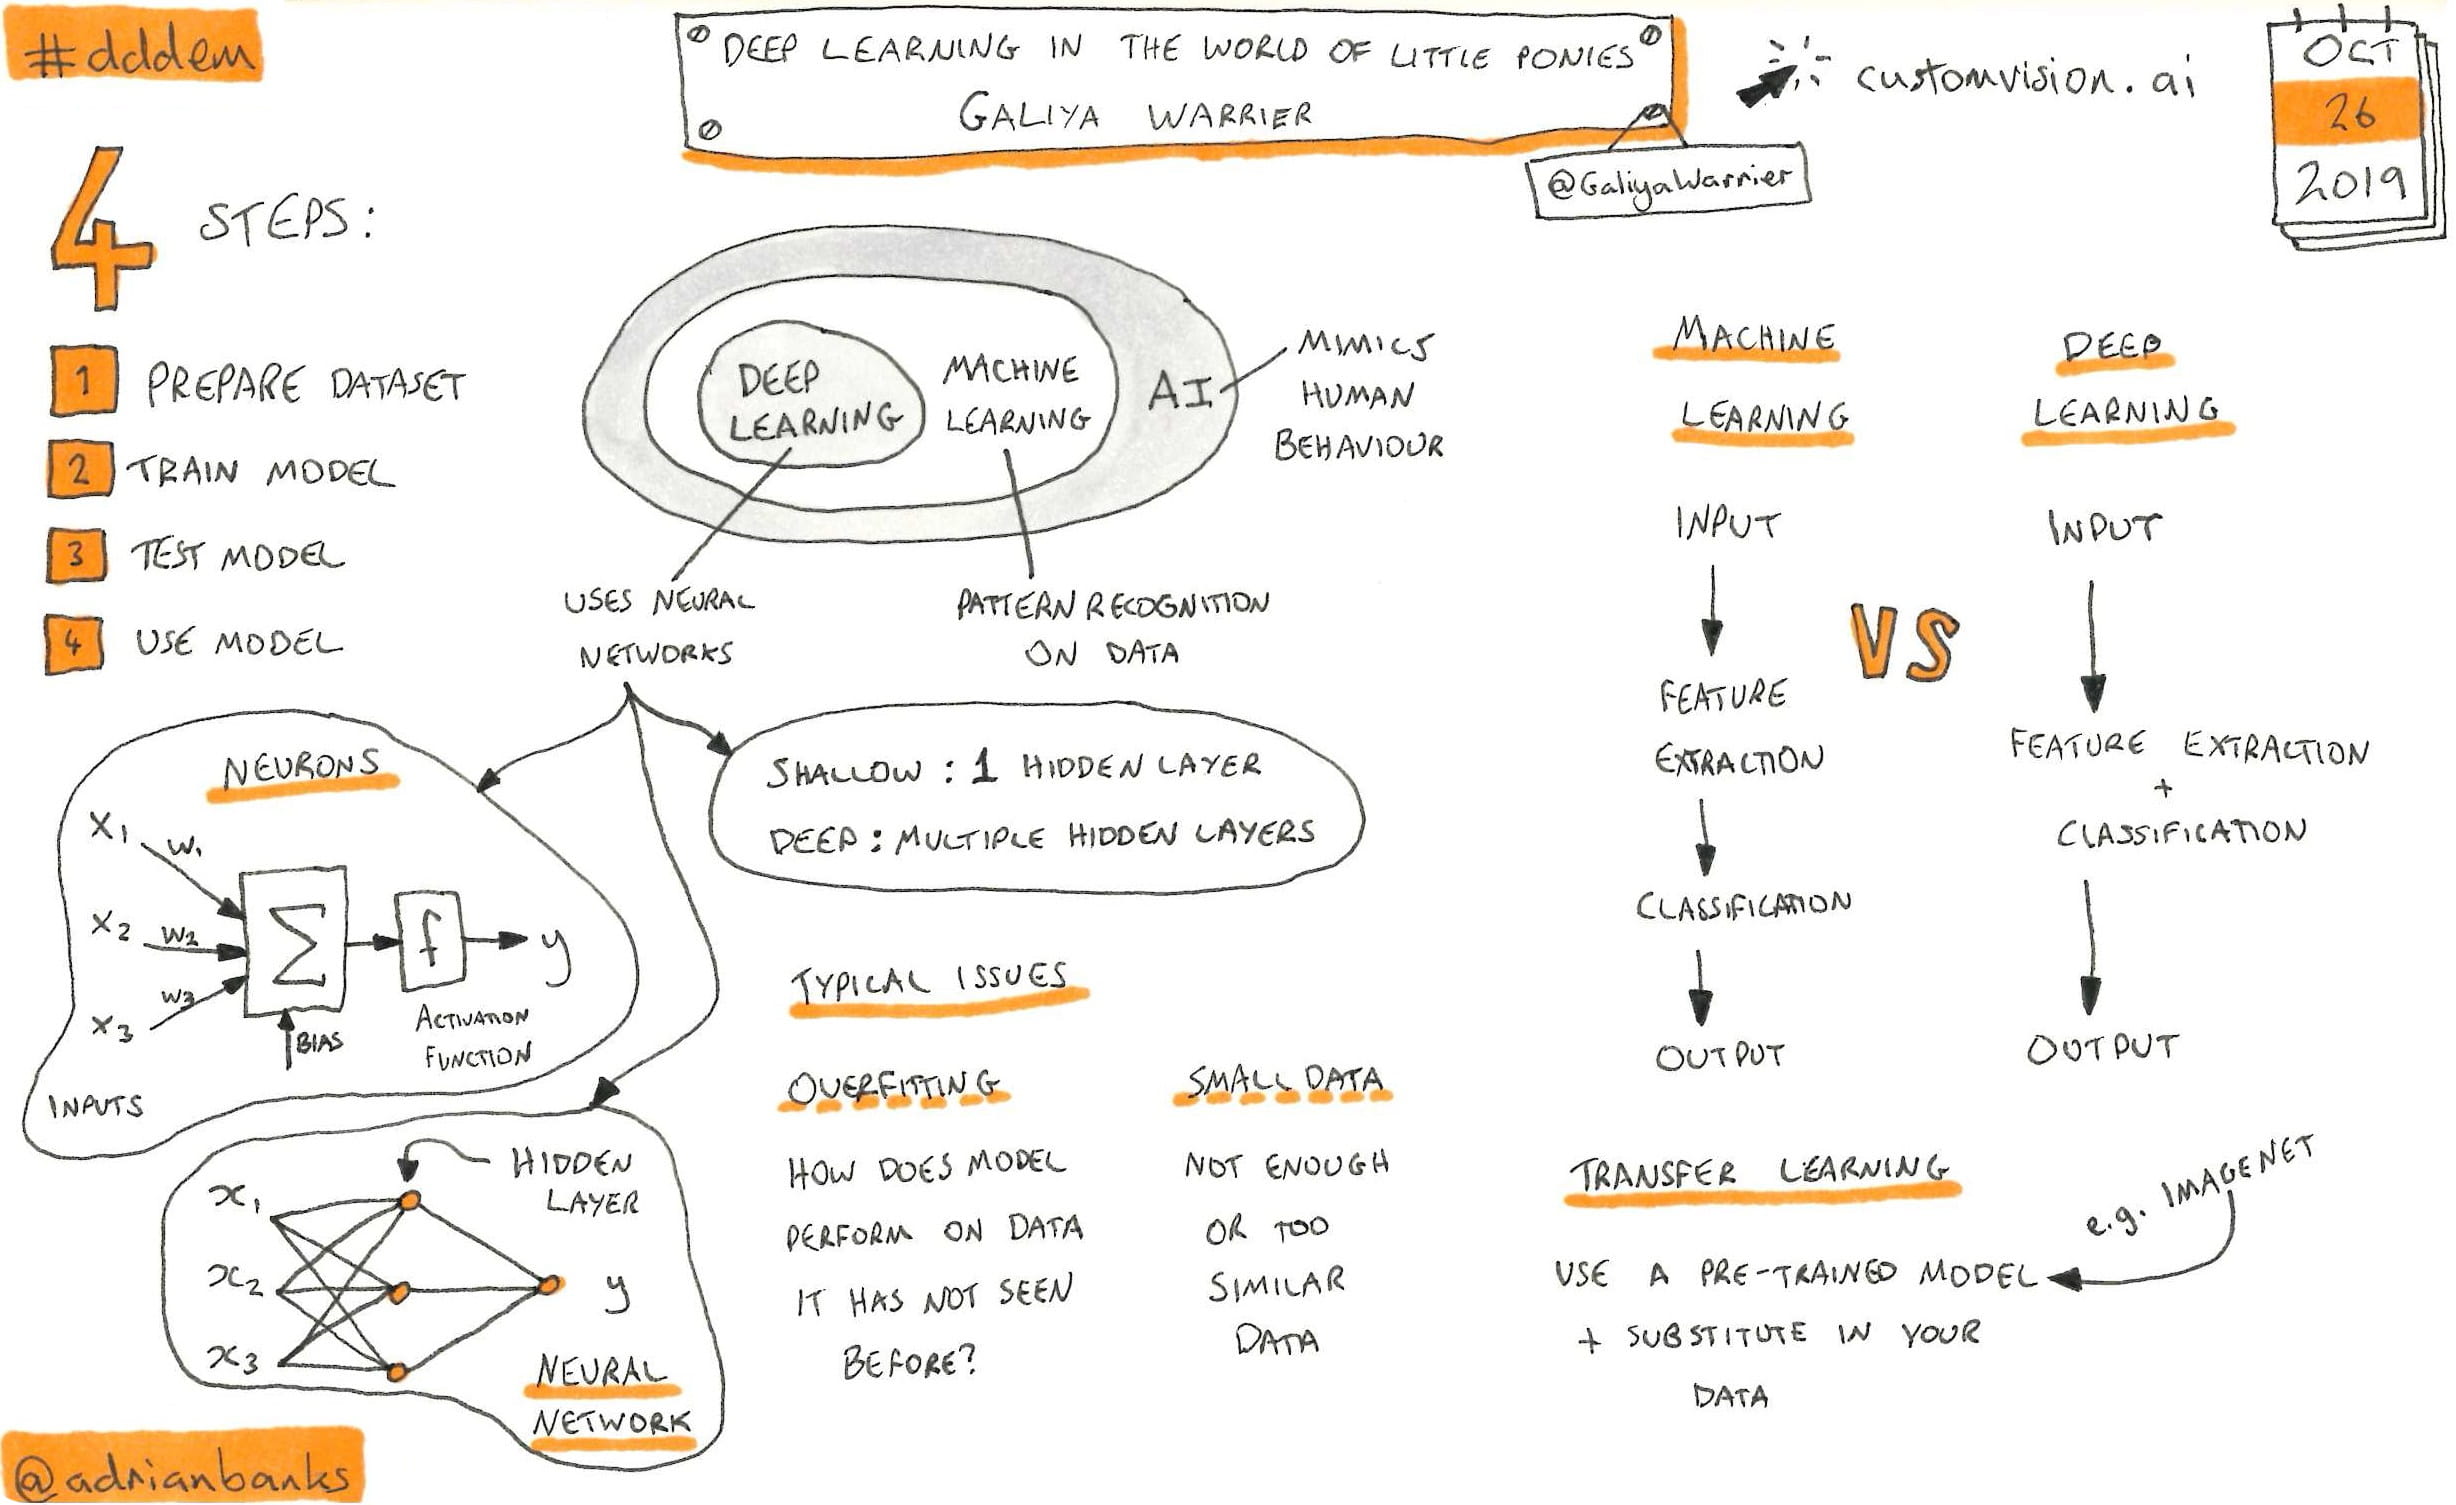 #dddem
DEEP LEARNING IN THE WORLD OF LITTLE PONIES
GALIYA WARRIER
@GaliyaWarrier
customvision.ai
OCT
26
2019
4 STEPS:
1 PREPARE DATASET
2 TRAIN MODEL
3 TEST MODEL
4 USE MODEL
DEEP
LEARNING
MACHINE
LEARNING
AI
MIMICS
HUMAN
BEHAVIOUR
USES NEURAL
NETWORKS
PATTERN RECOGNITION
ON DATA
NEURONS
X1
W1
X2
W2
X3
W3
Σ
f
y
BIAS
ACTIVATION
FUNCTION
INPUTS
SHALLOW : 1 HIDDEN LAYER
DEEP : MULTIPLE HIDDEN LAYERS
HIDDEN
LAYER
x1
x2
x3
y
NEURAL
NETWORK
TYPICAL ISSUES
OVERFITTING
HOW DOES MODEL
PERFORM ON DATA
IT HAS NOT SEEN
BEFORE?
SMALL DATA
NOT ENOUGH
OR TOO
SIMILAR
DATA
MACHINE
LEARNING
INPUT
FEATURE
EXTRACTION
CLASSIFICATION
OUTPUT
VS
DEEP
LEARNING
INPUT
FEATURE EXTRACTION
+
CLASSIFICATION
OUTPUT
TRANSFER LEARNING
e.g. IMAGENET
USE A PRE-TRAINED MODEL
+ SUBSTITUTE IN YOUR
DATA
@adrianbanks